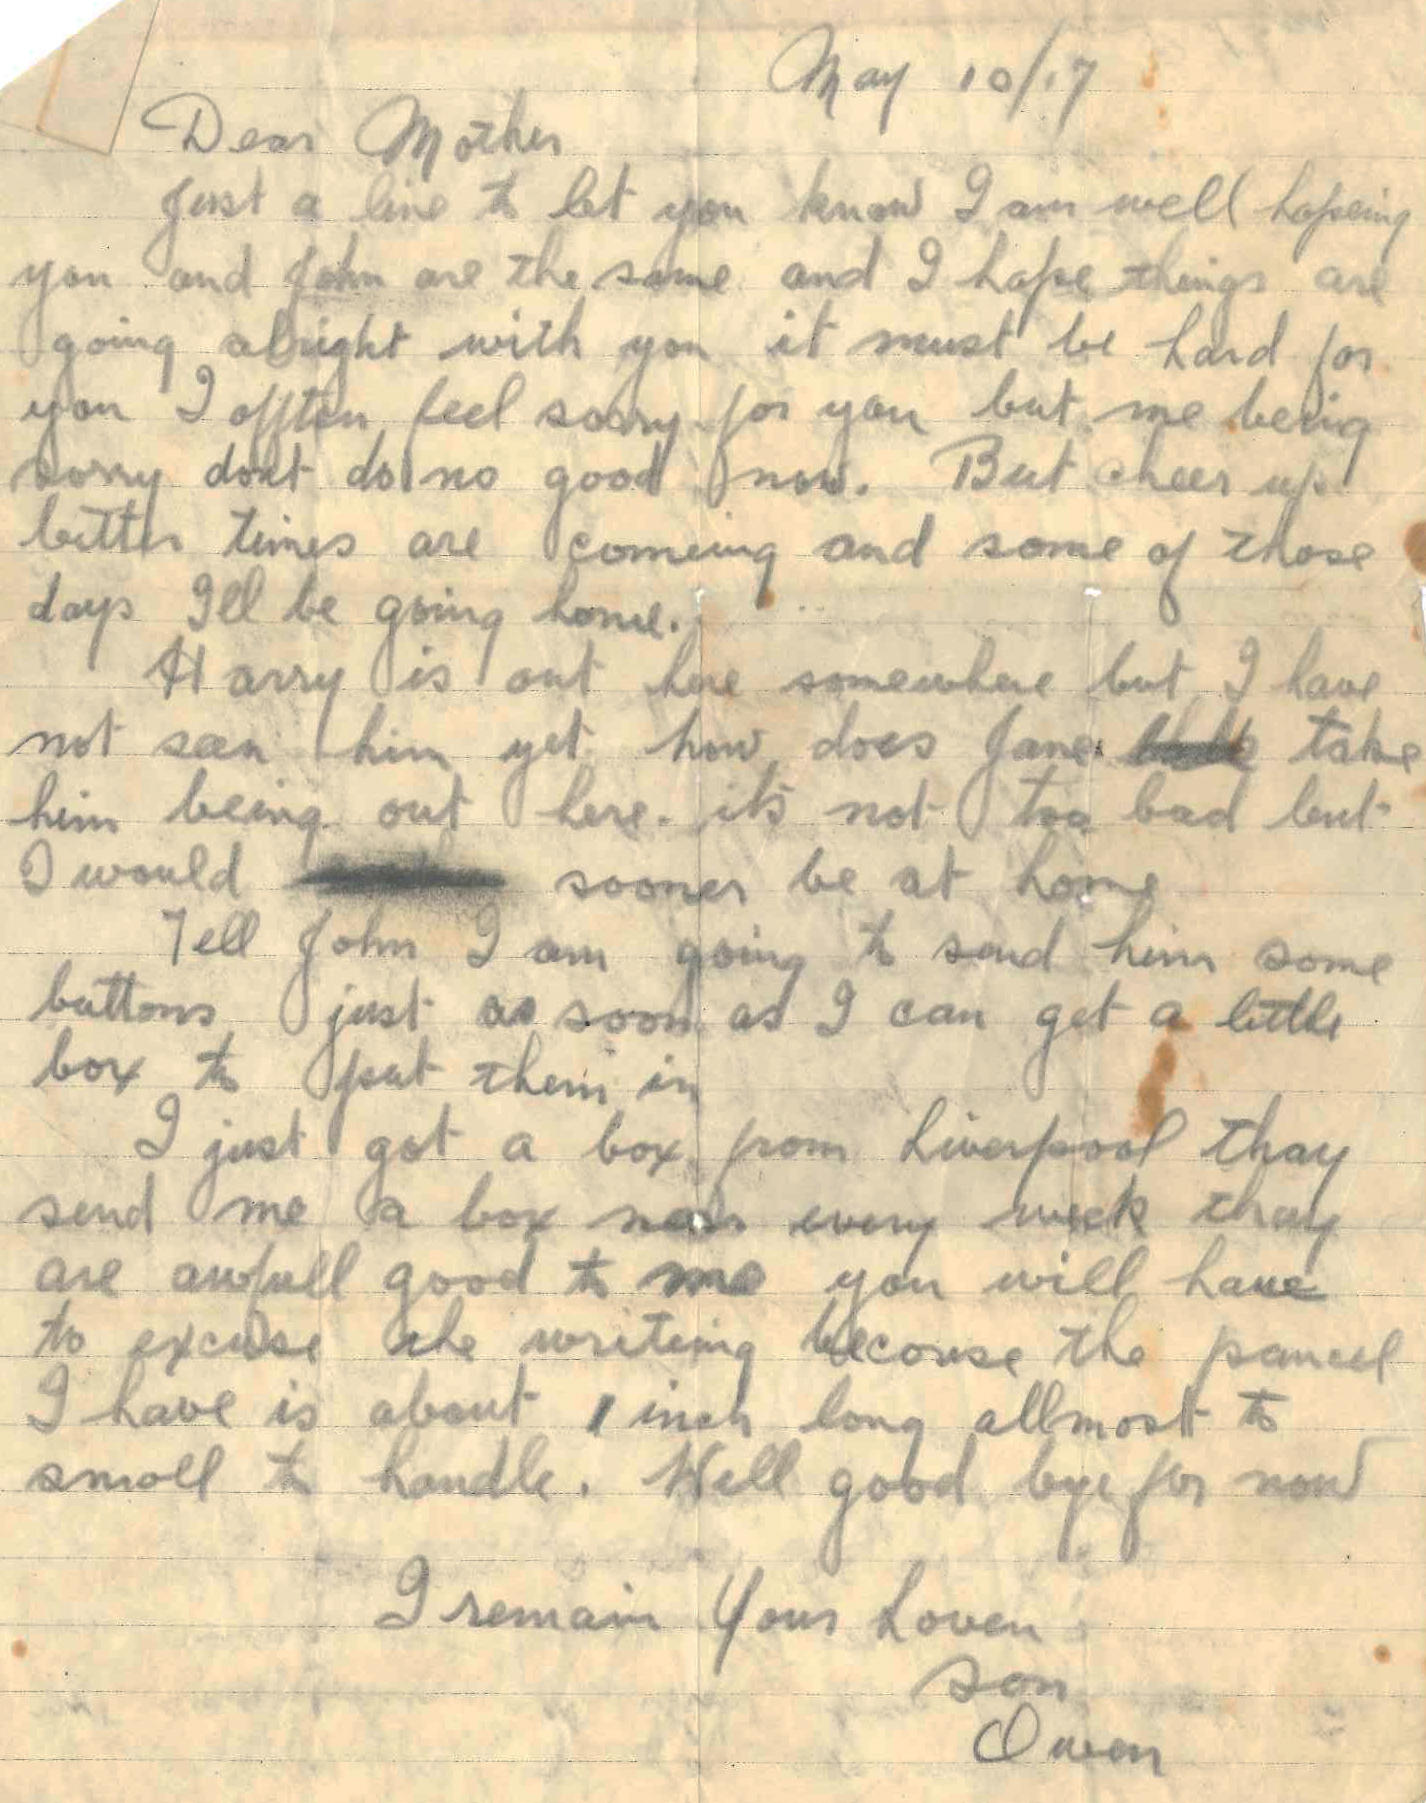 May 10/17
Dear Mother
Just a line to let you know I am well hopeing
you and John are the same and I hope things are
going alright with you it must be hard for
you I offten feel sorry for you but me being
sorry dont do no good now. But cheer up
better times are comeing and some of those
days Ill be going home.
Harry is out here somewhere but I have
not seen him yet how does Jane take
him being out here. its not too bad but
I would sooner be at home
Tell John I am going to send him some
buttons just as soon as I can get a little
box to put them in
I just got a box from Liverpool thay
send me a box near every week thay
are awfull good to me you will have
to excuse the writeing becouse the pancel
I have is about 1 inch long allmost to
small to handle. Well good bye for now
I remain Your Loven
son
Owen